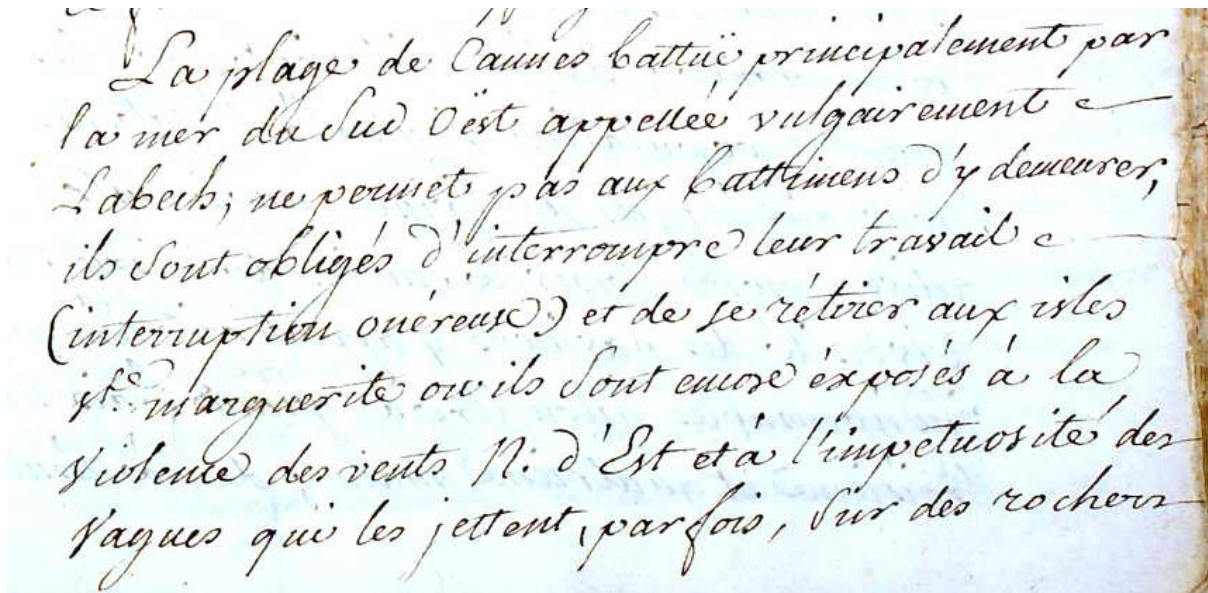 La plage de Cannes battüe principalement par
la mer du Sud Oëst appellée vulgairement
Labech; ne permet pas aux battimens d'y demeurer,
ils sont obligés d'interrompre leur travail
(interruption onéreuse) et de se rétirer aux isles
Ste. marguerite ou ils sont encore éxposés à la
violence des vents N. d'Est et à l'impetuosité des
vagues qui les jettent, par fois, sur des rochers